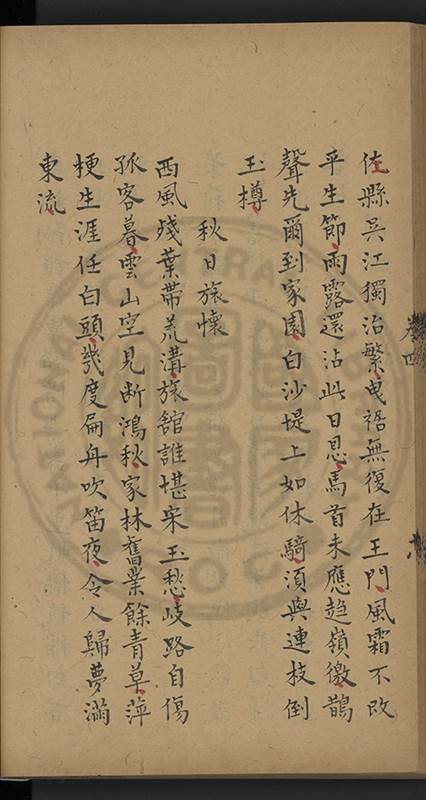 佐縣吳江獨治繁曳裾無復在王門風霜不改
平生節雨露還沾此日恩馬首未應趋嶺徼鵲
聲先爾到家園白沙堤上如休騎須與連枝倒
玉樽
秋日旅懷
西風殘葉帶荒溝旅舘誰堪宋玉愁岐路自傷
孤客暮雲山空見断鴻秋家林舊業餘青草萍
梗生涯任白頭幾度扁舟吹笛夜令人歸夢滿
東流
卷四
八